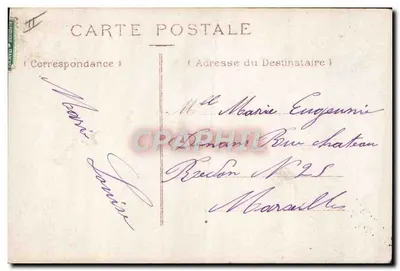 CARTE POSTALE
( Correspondance )
( Adresse du Destinataire )
Marie
Louise
Mlle Marie Eugenie
Rue chateau
Redon N° 25
Marseille
CPAPHIL